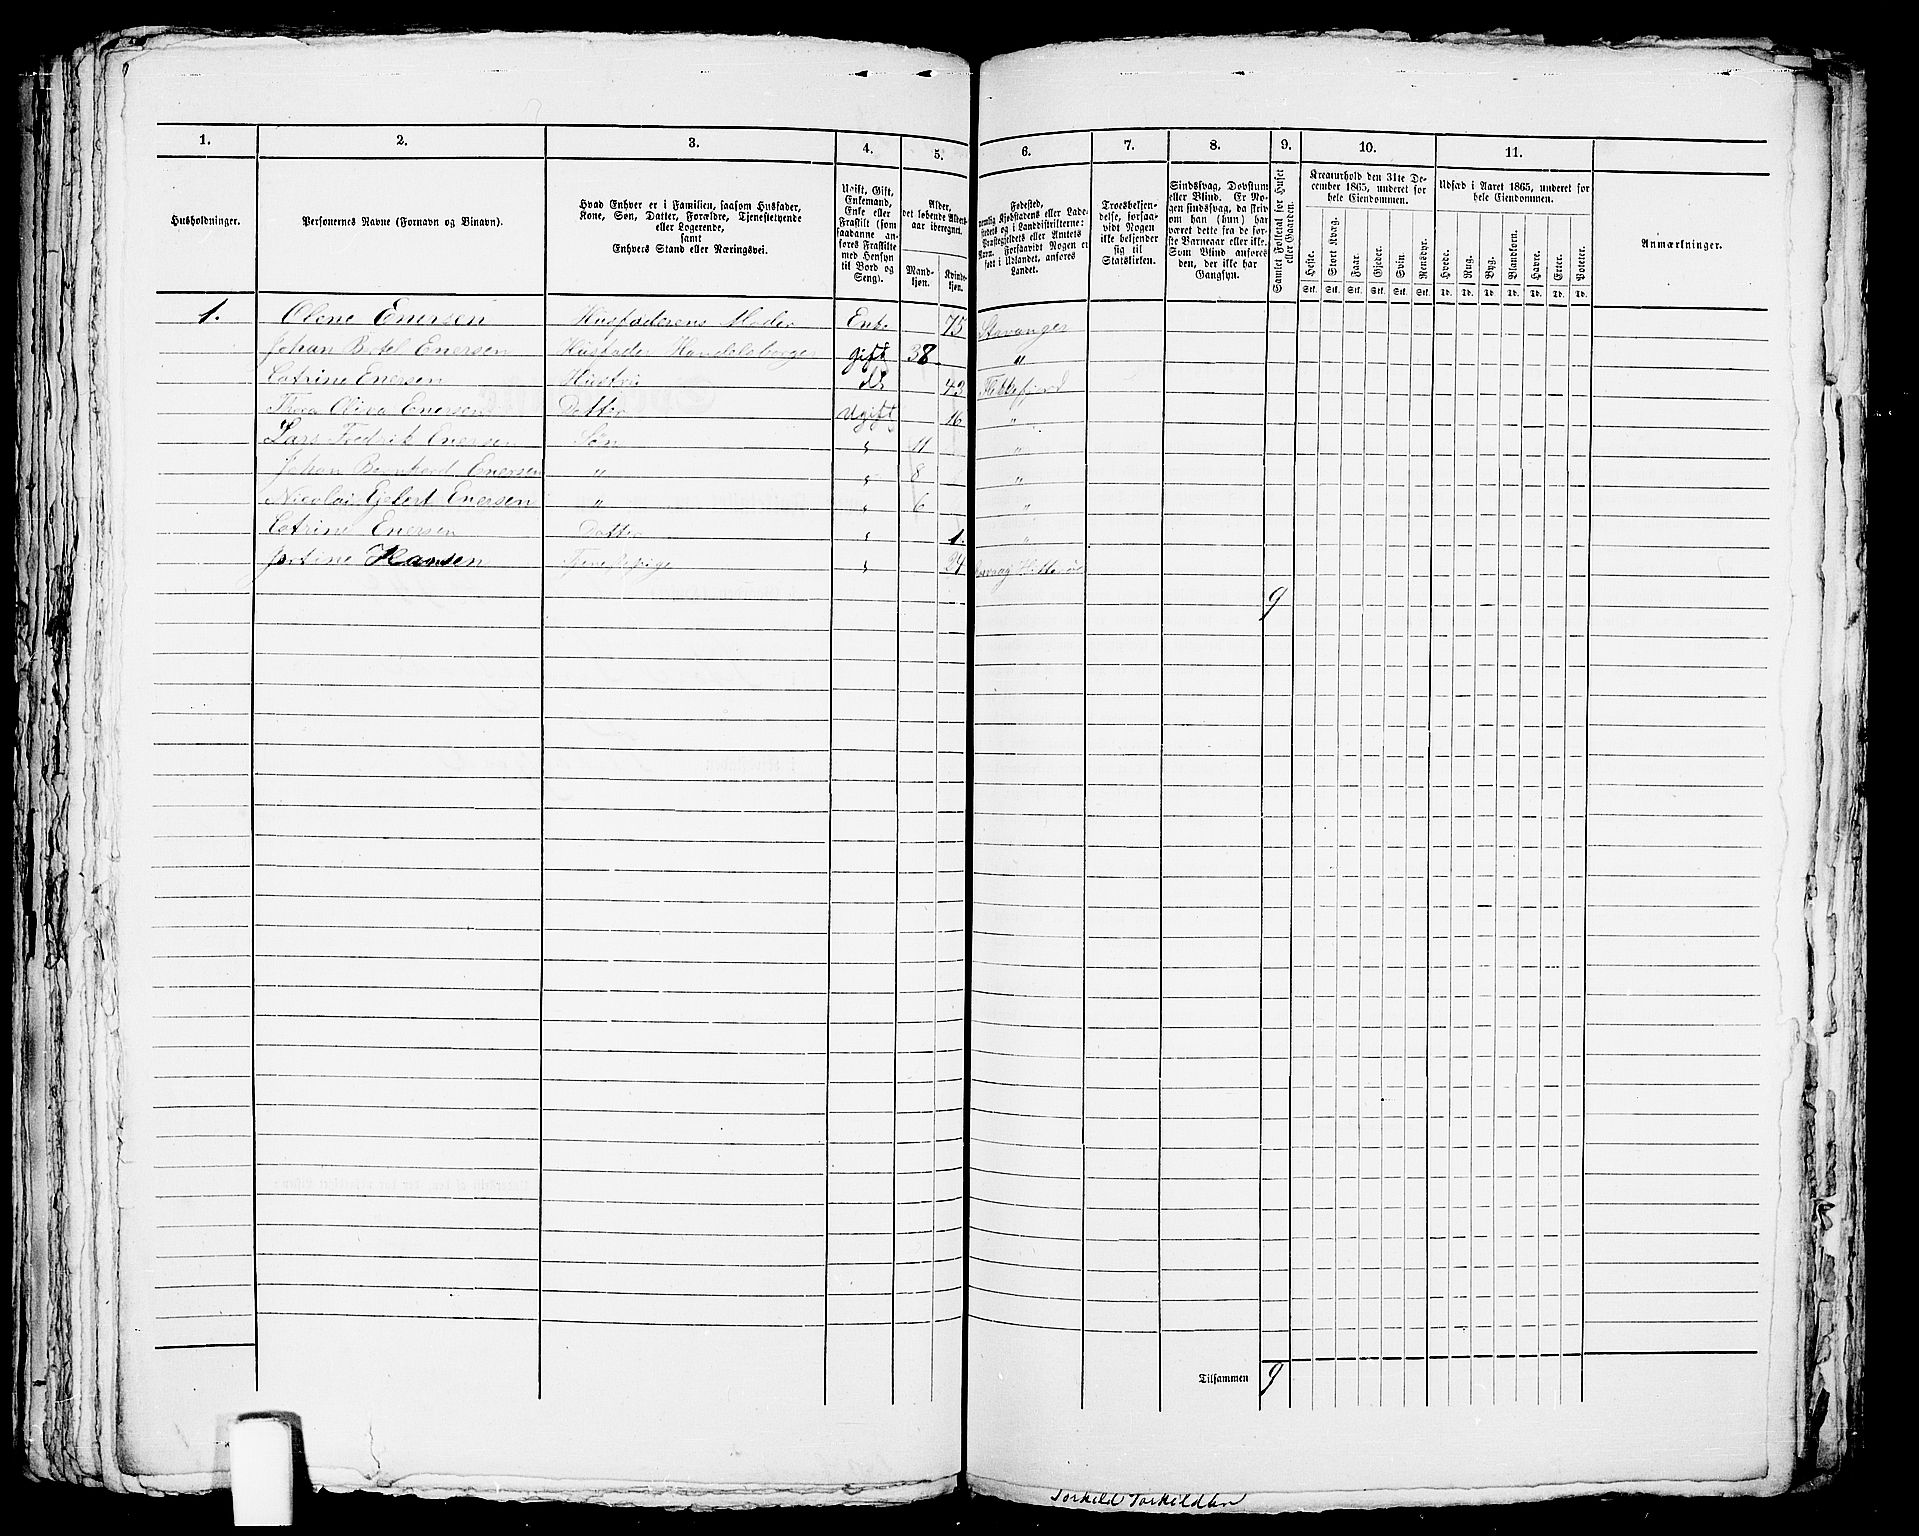 1. 2. 3. 4. 5. 6. 7. 8. 9. 10. 11.
Husholdninger.
Personernes Navne (Fornavn og Binavn).
Hvad Enhver er i Familien, saasom Husfader,
Kone, Søn, Datter, Forældre, Tjenestetyende
eller Logerende,
samt
Enhvers Stand eller Næringsvei.
Ugift, Gift,
Enkemand,
Enke eller
Fraskilt (som
saadanne an-
føres Fraskilte
med Hensyn
til Bord og
Seng).
Alder,
det løbende Alders-
aar iberegnet.
Mand-
kjøn.
Kvinde-
kjøn.
Fødested,
nemlig Kjøbstadens eller Lade-
stedets og i Landdistrikterne:
Præstegjeldets eller Amtets
Navn. Forsaavidt Nogen er
født i Udlandet, anføres
Landet.
Troesbekjen-
delse, forsaa-
vidt Nogen
ikke bekjender
sig til
Statskirken.
Sindssvag, Døvstum
eller Blind. Er No-
gen sindssvag, da skriv
om han (hun) har
været dette fra de før-
ste Barneaar eller ikke.
Som Blind anføres
den, der ikke har
Gangsyn.
Samlet Folketal for Huset
eller Gaarden.
Kreaturhold den 31te De-
cember 1865, underet for
hele Eiendommen.
Heste. Stort Kvæg. Faar. Gjeder. Svin. Rensdyr.
Stk. Stk. Stk. Stk. Stk. Stk.
Udsæd i Aaret 1865, underet for
hele Eiendommen.
Hvede. Rug. Byg. Blandkorn. Havre. Erter. Poteter.
Td. Td. Td. Td. Td. Td. Td.
Anmærkninger.
1. Olene Enersen Husfaderens Moder Enke 75 Stavanger
Johan Botel Enersen Husfader Handelsborger gift 38 "
Catrine Enersen Hustru do 43 Flekkefjord
Thea Oliva Enersen Datter Ugift 16 "
Lars Fredrik Enersen Søn " 11 "
Johan Bernhard Enersen " " 8 "
Nicolai Gjelert Enersen " " 6 "
Catrine Enersen Datter " 1. "
Jortine Hansen Tjenestepige " 24 Hitterøe
9
Tilsammen 9
Torkild Torkildsen